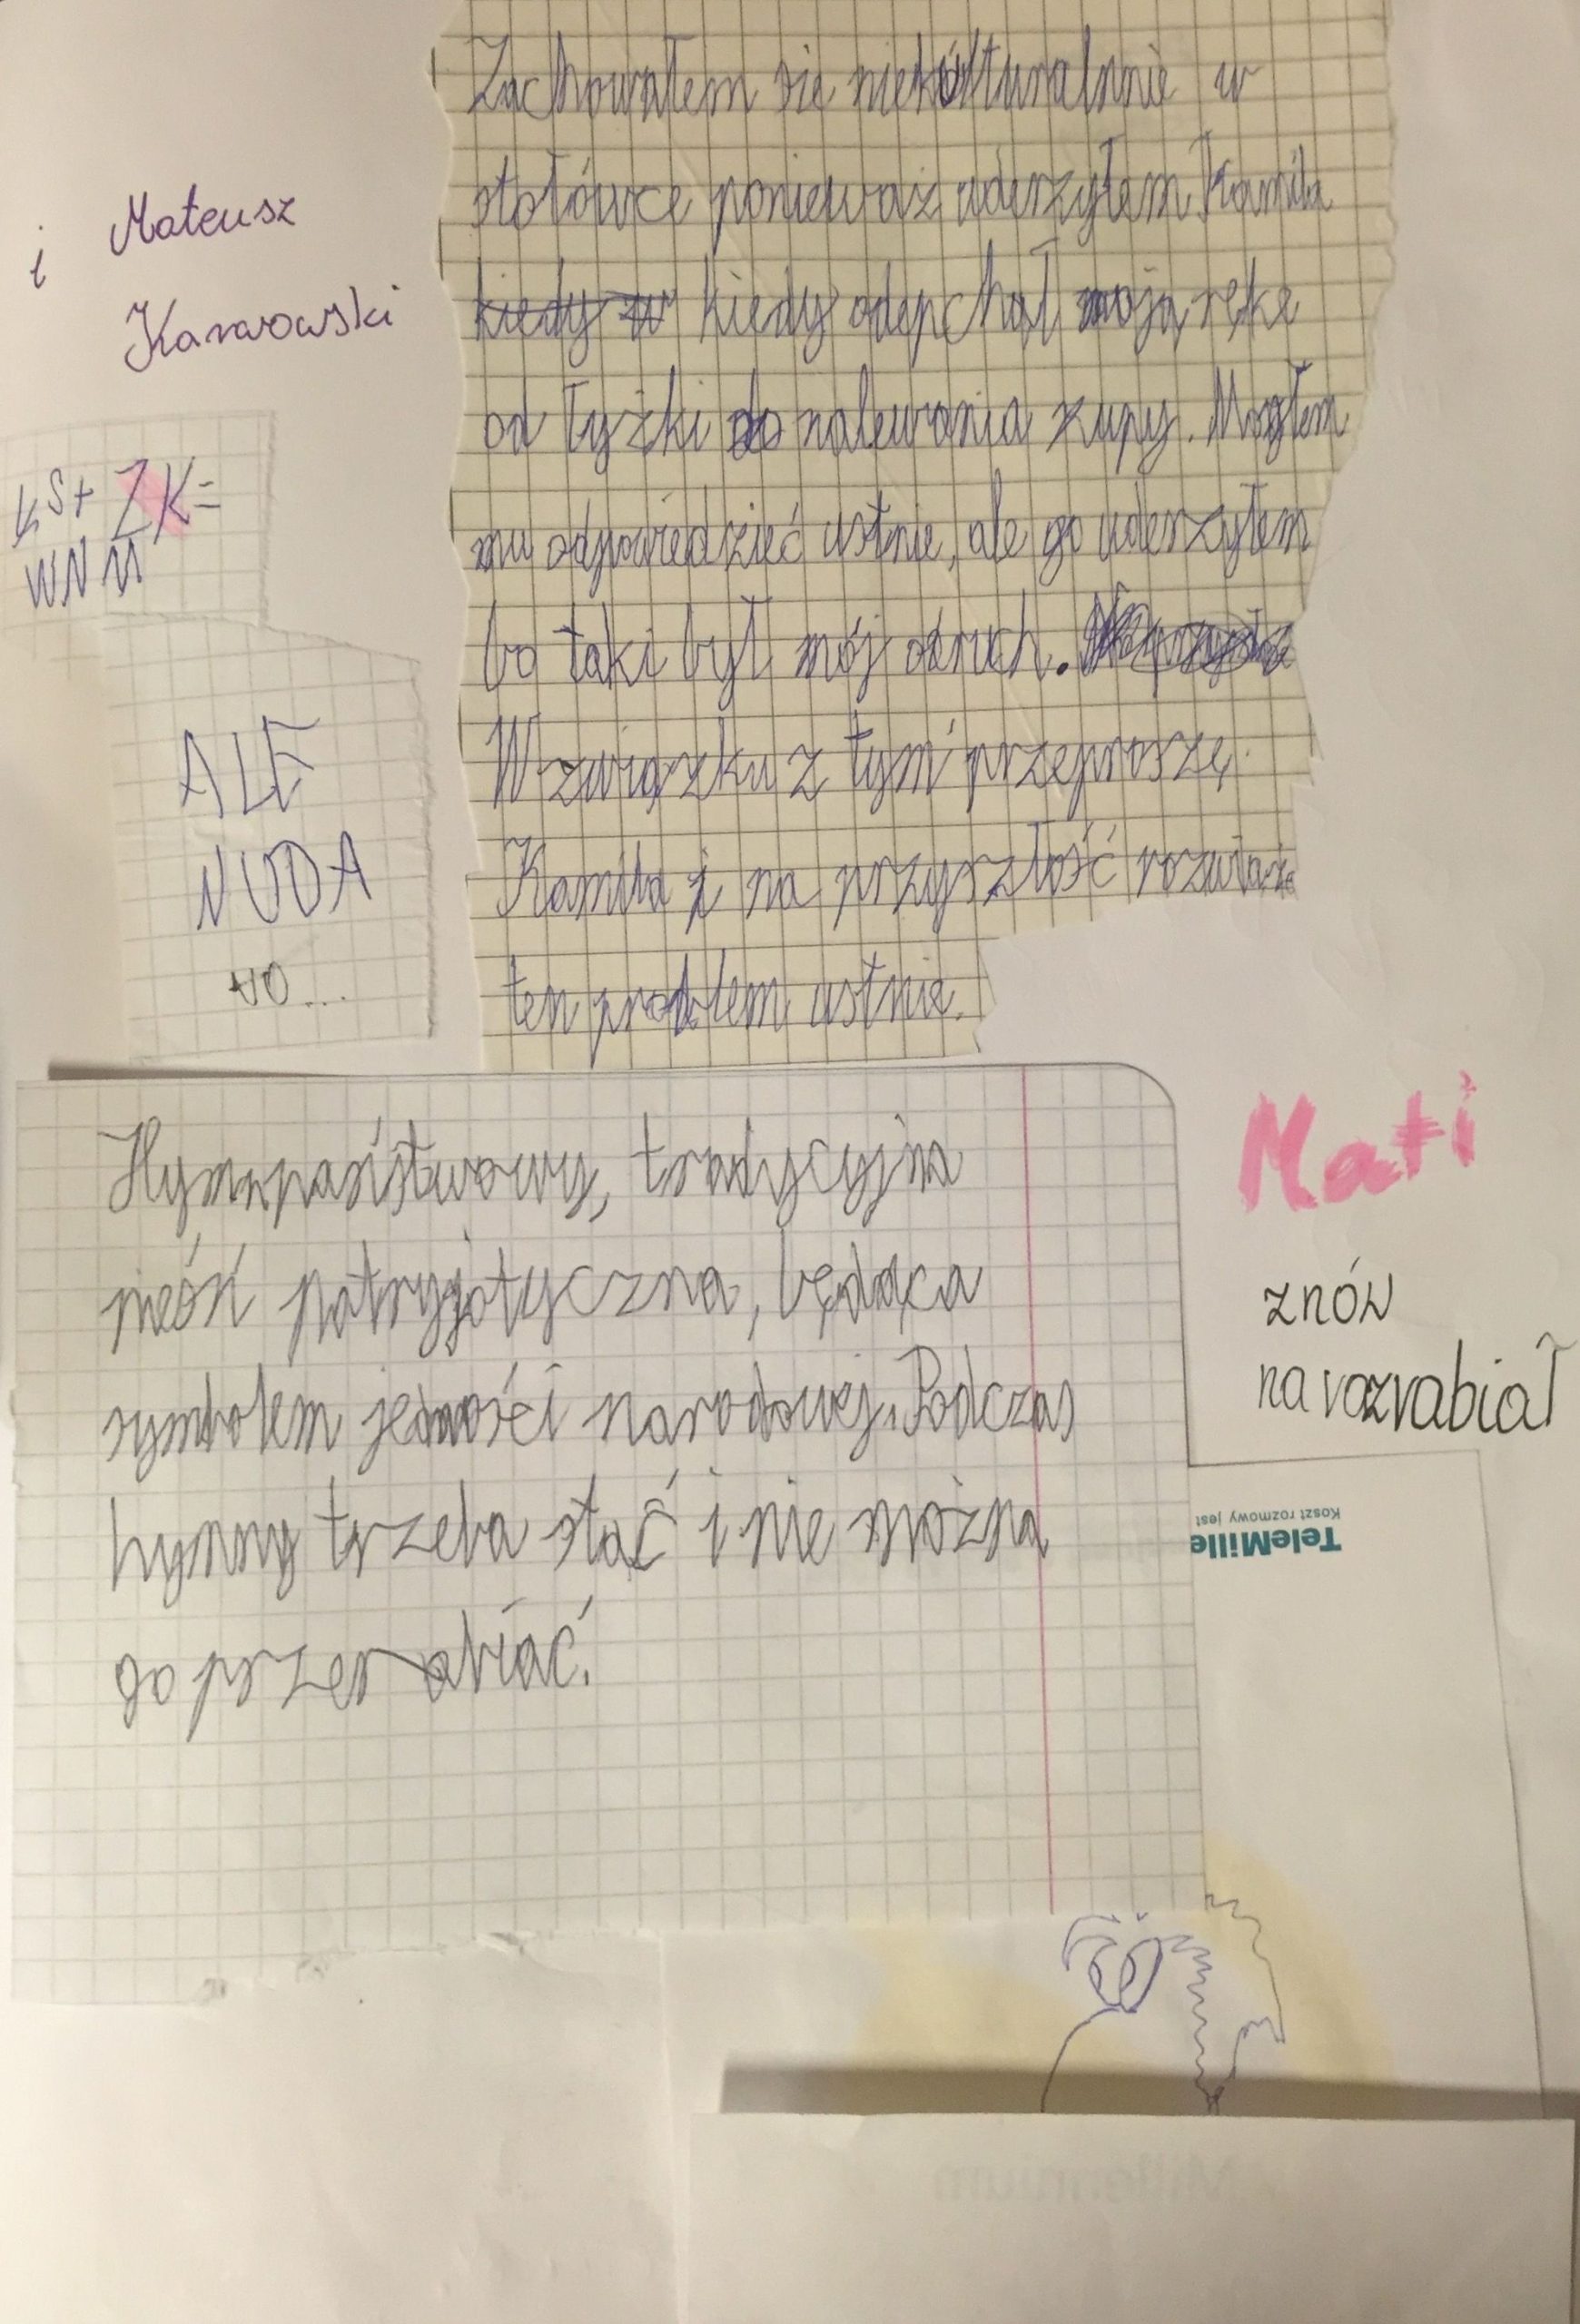 i Mateusz
Karwowski
KS+ ZK=
WNM
ALE
NUDA
NO...
Zachowałem się niekólturalnnie w
stołówce ponieważ uderzyłem Kamila
kiedy w kiedy odepchał moją rękę
od łyżki do nalewania zupy. Mogłem
mu odpowiedzieć ustnie, ale go uderzyłem
bo taki był mój odruch.
W związku z tym przeproszę
Kamila i na przyszłość rozwiąże
ten problem ustnie.
Hymn państwowy, tradycyjna
pieśń patryjotyczna, będąca
symbolem jedności narodowej. Podczas
hymny trzeba stać i nie można
go przerabiać.
Mati
znów
narozrabiał
TeleMille
Koszt rozmowy jest
Millennium